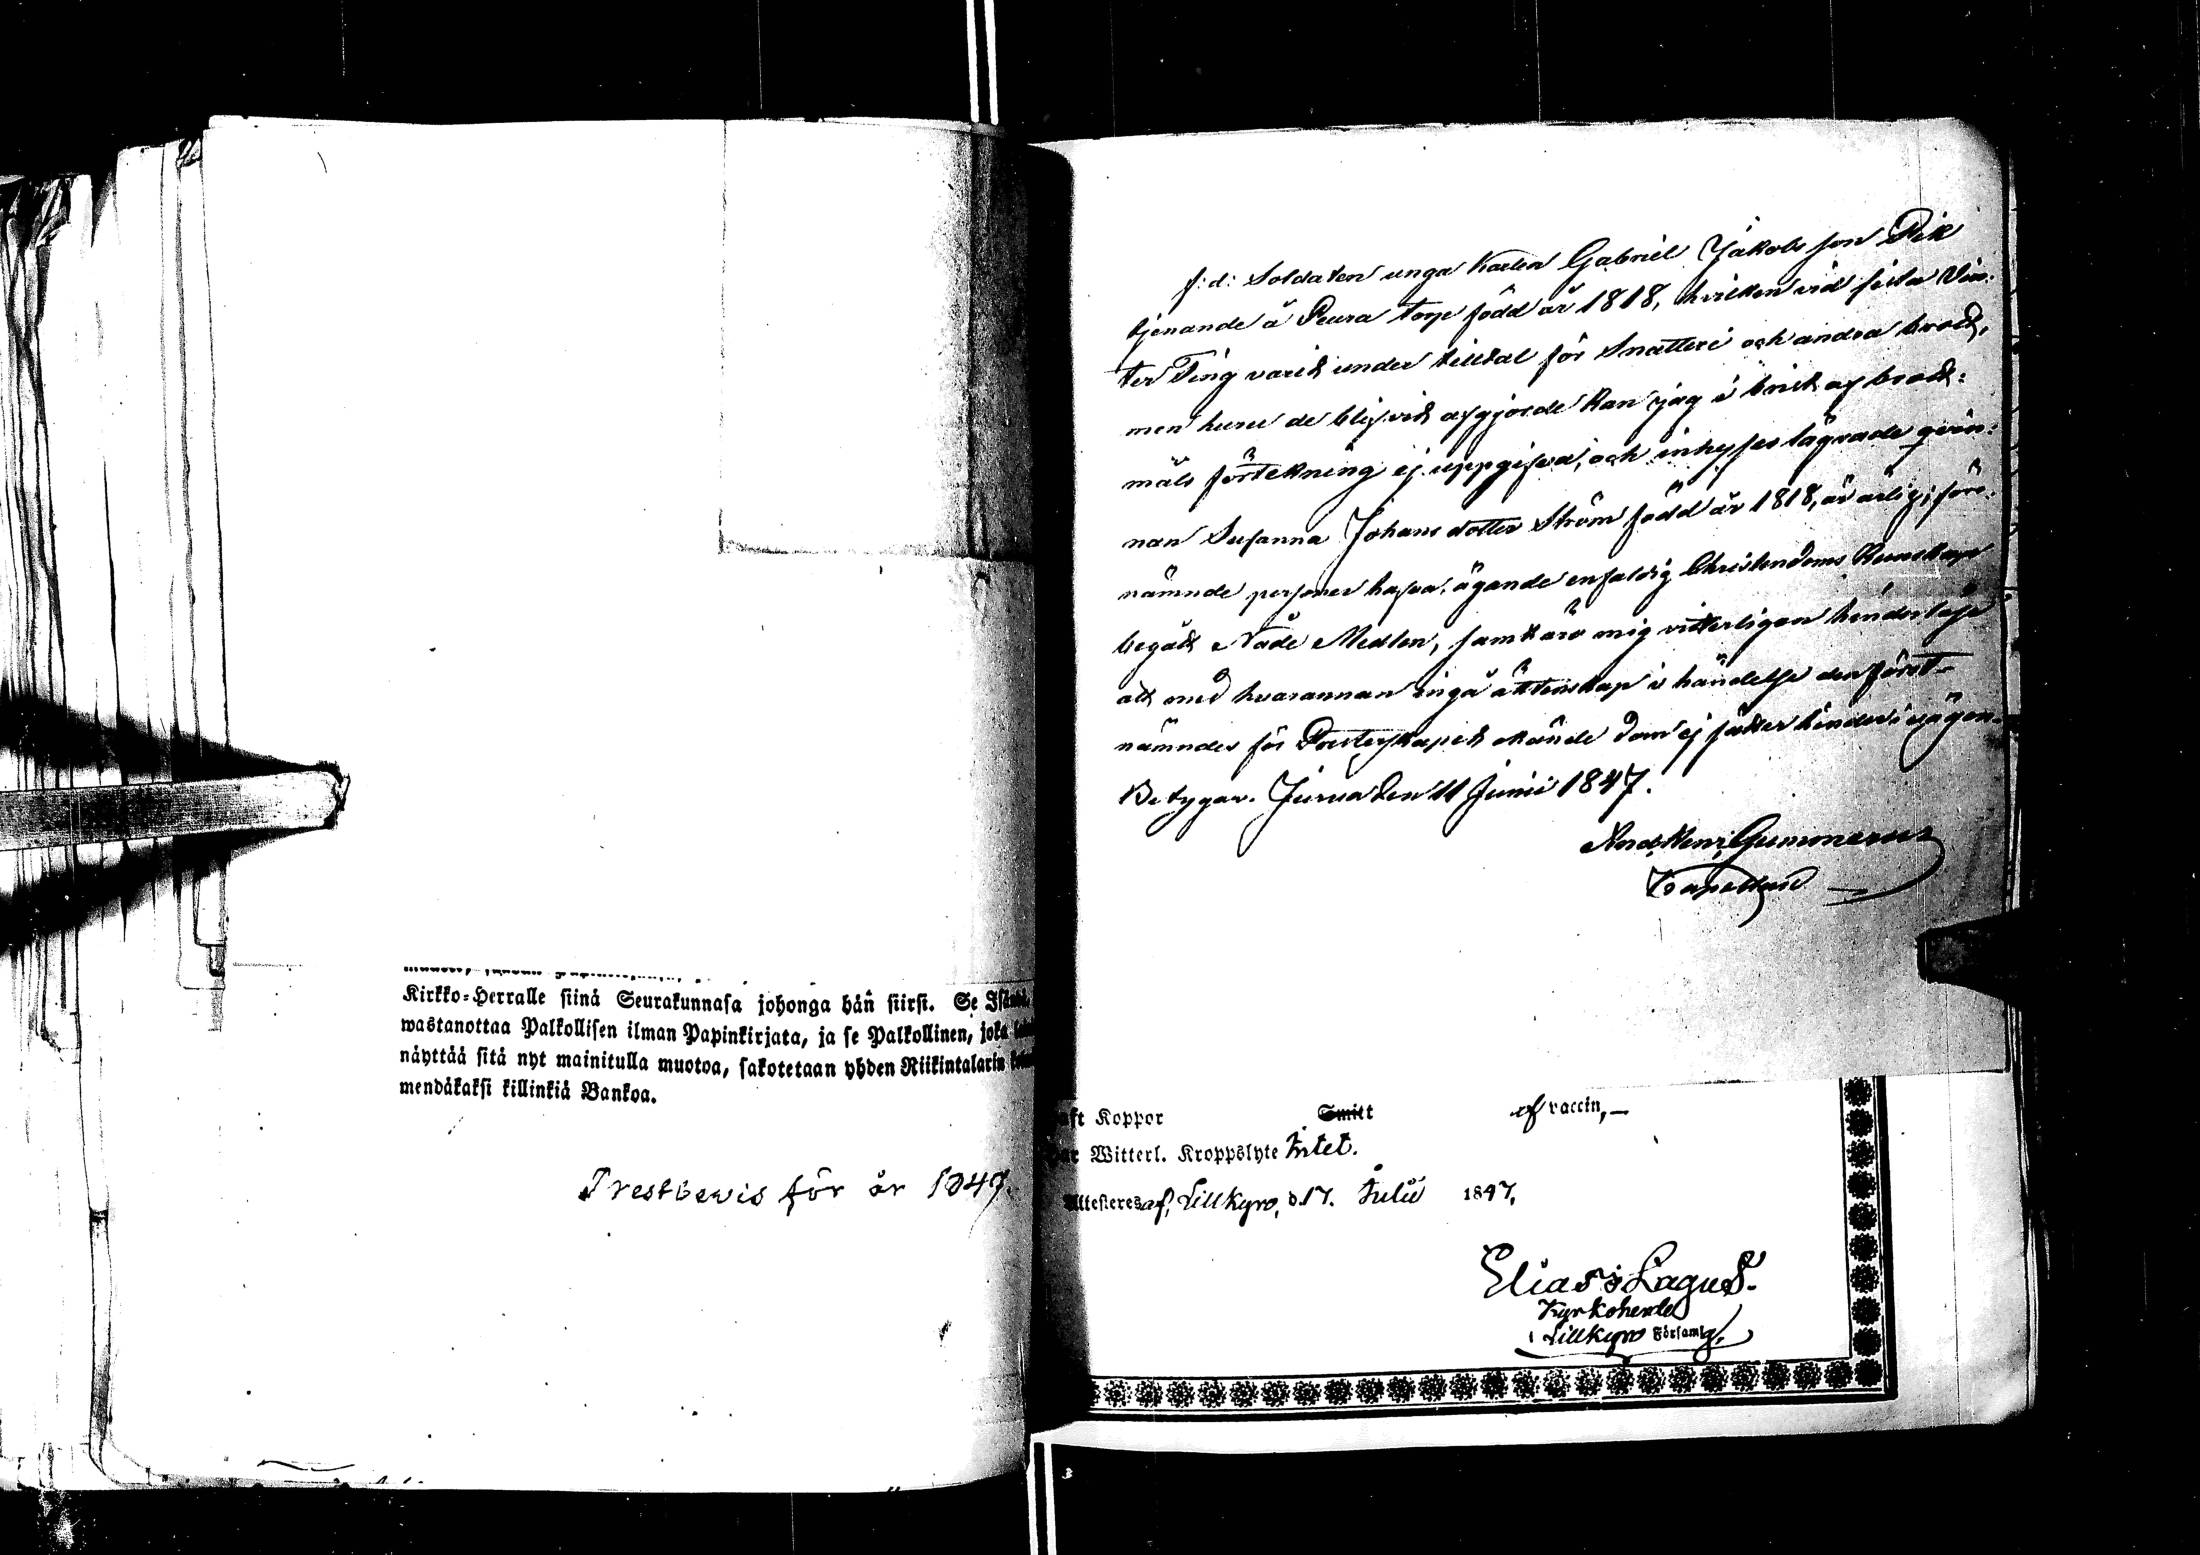 Kirkko-Herralle siinä Seurakunnasa johonga hän siirsi. Se
wastanottaa Palkollisen ilman Papinkirjata, ja se Palkollinen, joka
näyttää sitä nyt mainitulla muotoa, sakotetaan yhden Riikintalarin
mendäkaksi killinkiä Bankoa.
Prestbevis för år 1847.
f:d: Soldaten unga Karlen Gabriel Jakobsson Pik
tjenande å Peura torp född år 1818, hvilken vid sista Vin-
ter Ting varit under tilltal för Snatteri och andra brott,
men huru de blifvit afgjorde kan jag i brist af brott-
måls förtekning ej uppgifva, och inhyses lägrade qvin-
nan Susanna Johansdotter Ström född år 1818, är ärlig; före-
nämnde personer hafva, ägande enfaldig Christendoms Kunskap
begått Nåde Medlen, samt äro mig vitterligen hinderlöse
att med hvarannan ingå äktenskap i händelse den först-
nämndes för Presterskapet okände dom ej sätter hinder i vägen.
Betygar. Jurva den 11 Junii 1847.
And. Henr. Gummerus
Capellan
aft Koppor Smitt af vaccin,—
Witterl. Kroppslyte intet.
Attesteres af, Lillkyro, d. 17. Julii 1847,
Elias Lagus.
Kyrkoherde
i Lillkyro Församlg.